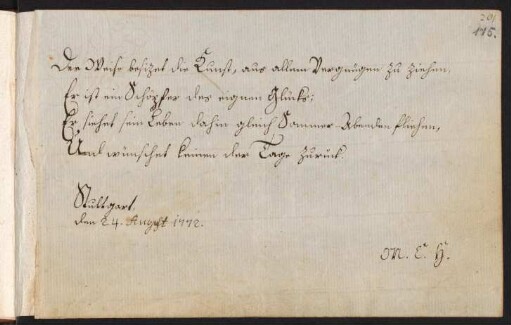 201
115.
Der Weise besizet die Kunst, aus allem Vergnügen zu ziehen,
Er ist ein Schöpfer des eignen Glücks;
Er siehet sein Leben dahin gleich Sommer-Abenden fliehen,
Und wünschet keinen der Tage zurück.
Stuttgart.
den 24. August 1772.
M. C. H.